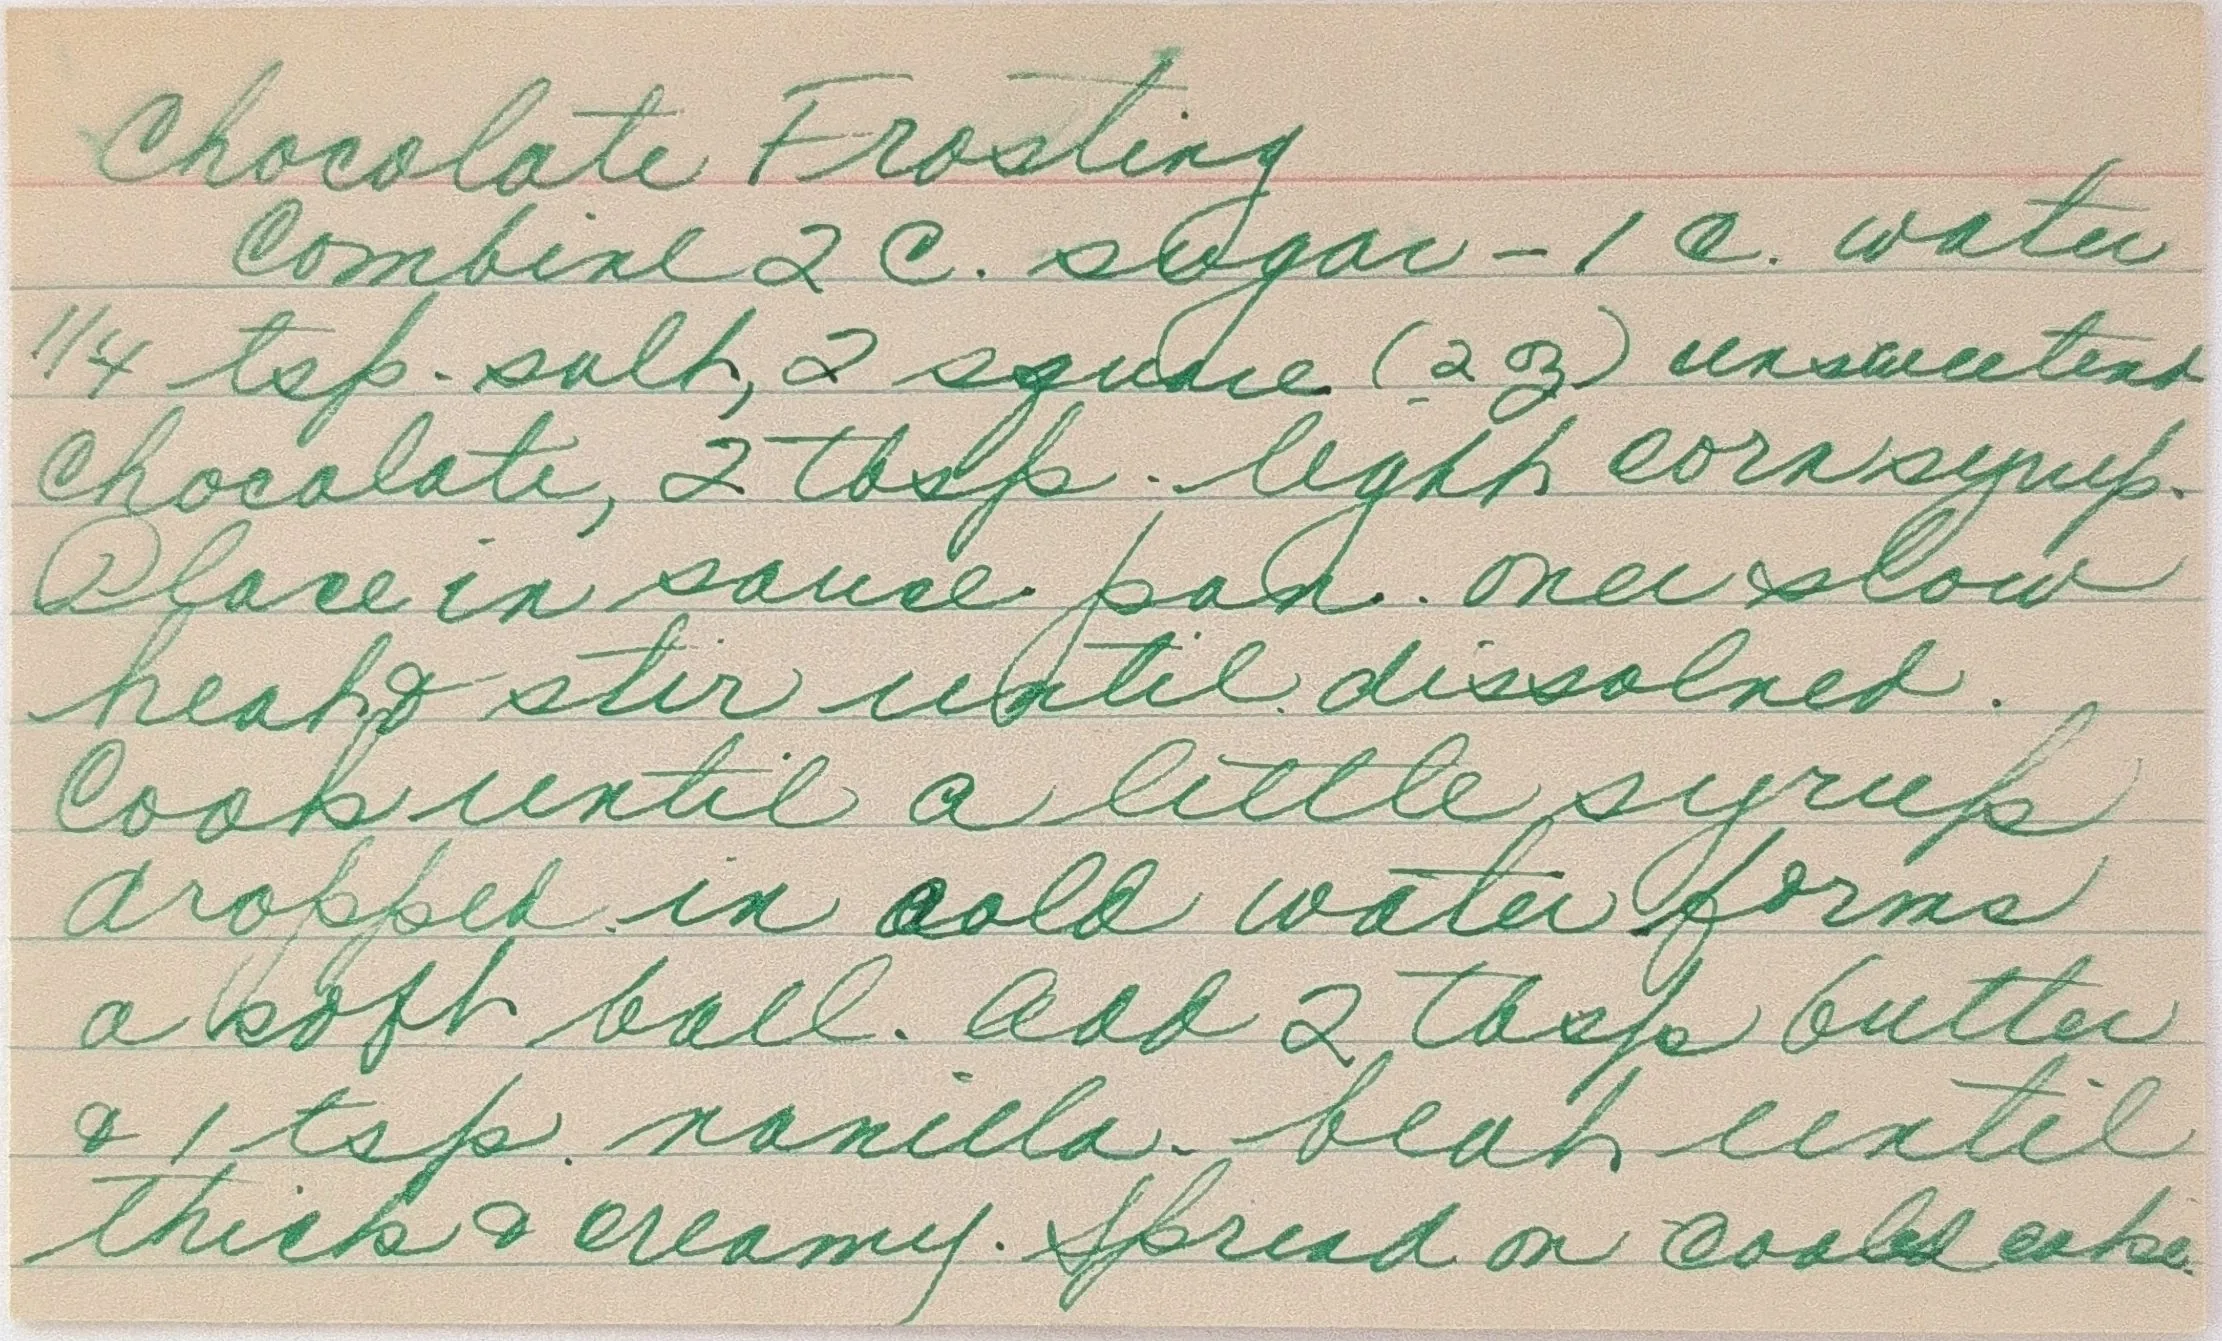 Chocolate Frosting
Combine 2 C. sugar - 1 C. water
1/4 tsp. salt, 2 square (2 oz) unsweetend
chocolate, 2 Tbsp. light corn syrup.
Place in sauce pan. over slow
heat & stir until dissolved.
Cook until a little syrup
dropped in cold water forms
a soft ball. Add 2 Tbsp butter
& 1 tsp. vanilla. beat until
thick & creamy. Spread on cooled cake.